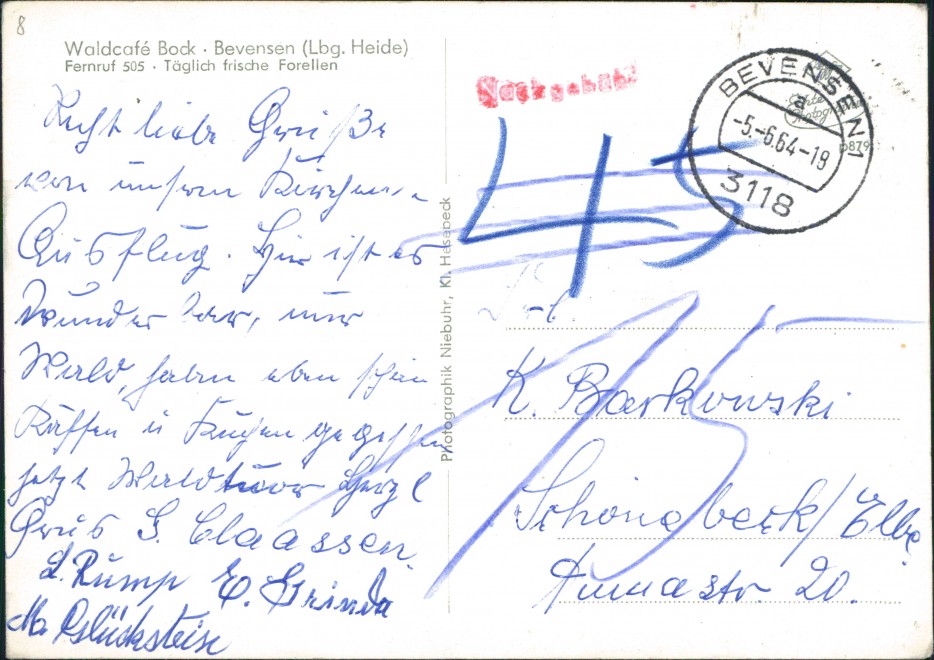 8
Waldcafé Bock · Bevensen (Lbg. Heide)
Fernruf 505 · Täglich frische Forellen
Recht liebe Grüße
von unserm Kirchen-
Ausflug. Hier ist es
wunderbar, nur
Wald, haben eben schön
Kaffee u Kuchen gegessen
jetzt Waldtour Herzl
Grus G. Claassen.
L. Rump E. Grinda
M. Glückstein
Photographik Niebuhr, Kl. Hesebeck
Nachgebühr
45
BEVENSEN 1
a
-5.-6.64-18
3118
Echte
Photogr
p879
K. Barkowski
Schönebeck/Elbe
Annastr 20.